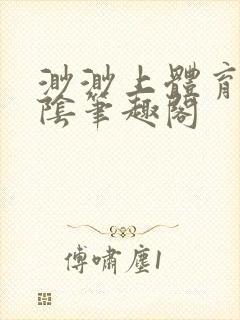 渺渺上體育
陰筆趣閣
傅嘯塵1